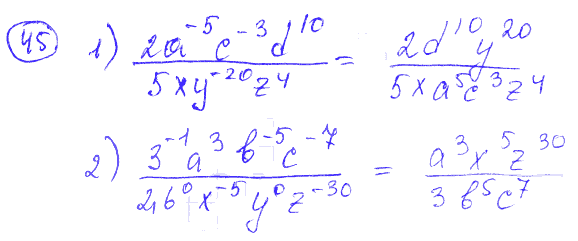 45 1) \frac{2a^{-5}c^{-3}d^{10}}{5xy^{-20}z^4} = \frac{2d^{10}y^{20}}{5xa^5c^3z^4}
2) \frac{3^{-1}a^3b^{-5}c^{-7}}{2,16^0x^{-5}y^0z^{-30}} = \frac{a^3x^5z^{30}}{3b^5c^7}